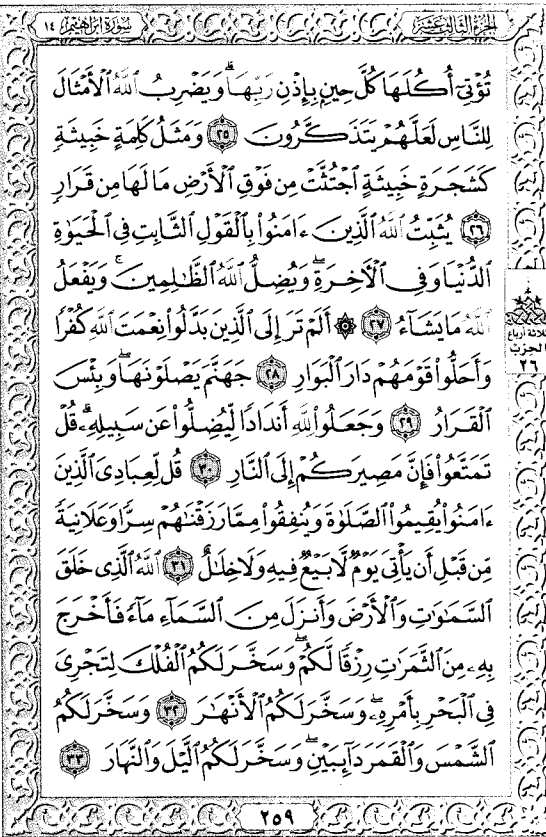 الجزء الثالث عشر سورة ابراهيم ١٤
تُؤْتِىٓ أُكُلَهَا كُلَّ حِينٍۭ بِإِذْنِ رَبِّهَاۗ وَيَضْرِبُ ٱللَّهُ ٱلْأَمْثَالَ
لِلنَّاسِ لَعَلَّهُمْ يَتَذَكَّرُونَ ٢٥ وَمَثَلُ كَلِمَةٍ خَبِيثَةٍ
كَشَجَرَةٍ خَبِيثَةٍ ٱجْتُثَّتْ مِن فَوْقِ ٱلْأَرْضِ مَا لَهَا مِن قَرَارٍ
٢٦ يُثَبِّتُ ٱللَّهُ ٱلَّذِينَ ءَامَنُوا۟ بِٱلْقَوْلِ ٱلثَّابِتِ فِى ٱلْحَيَوٰةِ
ٱلدُّنْيَا وَفِى ٱلْءَاخِرَةِۖ وَيُضِلُّ ٱللَّهُ ٱلظَّٰلِمِينَۚ وَيَفْعَلُ
ٱللَّهُ مَا يَشَآءُ ٢٧ ۞ أَلَمْ تَرَ إِلَى ٱلَّذِينَ بَدَّلُوا۟ نِعْمَتَ ٱللَّهِ كُفْرًا
وَأَحَلُّوا۟ قَوْمَهُمْ دَارَ ٱلْبَوَارِ ٢٨ جَهَنَّمَ يَصْلَوْنَهَاۖ وَبِئْسَ
ٱلْقَرَارُ ٢٩ وَجَعَلُوا۟ لِلَّهِ أَندَادًا لِّيُضِلُّوا۟ عَن سَبِيلِهِۦۗ قُلْ
تَمَتَّعُوا۟ فَإِنَّ مَصِيرَكُمْ إِلَى ٱلنَّارِ ٣٠ قُل لِّعِبَادِىَ ٱلَّذِينَ
ءَامَنُوا۟ يُقِيمُوا۟ ٱلصَّلَوٰةَ وَيُنفِقُوا۟ مِمَّا رَزَقْنَٰهُمْ سِرًّا وَعَلَانِيَةً
مِّن قَبْلِ أَن يَأْتِىَ يَوْمٌ لَّا بَيْعٌ فِيهِ وَلَا خِلَٰلٌ ٣١ ٱللَّهُ ٱلَّذِى خَلَقَ
ٱلسَّمَٰوَٰتِ وَٱلْأَرْضَ وَأَنزَلَ مِنَ ٱلسَّمَآءِ مَآءً فَأَخْرَجَ
بِهِۦ مِنَ ٱلثَّمَرَٰتِ رِزْقًا لَّكُمْۖ وَسَخَّرَ لَكُمُ ٱلْفُلْكَ لِتَجْرِىَ
فِى ٱلْبَحْرِ بِأَمْرِهِۦۖ وَسَخَّرَ لَكُمُ ٱلْأَنْهَٰرَ ٣٢ وَسَخَّرَ لَكُمُ
ٱلشَّمْسَ وَٱلْقَمَرَ دَآئِبَيْنِۖ وَسَخَّرَ لَكُمُ ٱلَّيْلَ وَٱلنَّهَارَ ٣٣
ثلاثة أرباع
الحزب
٢٦
٢٥٩